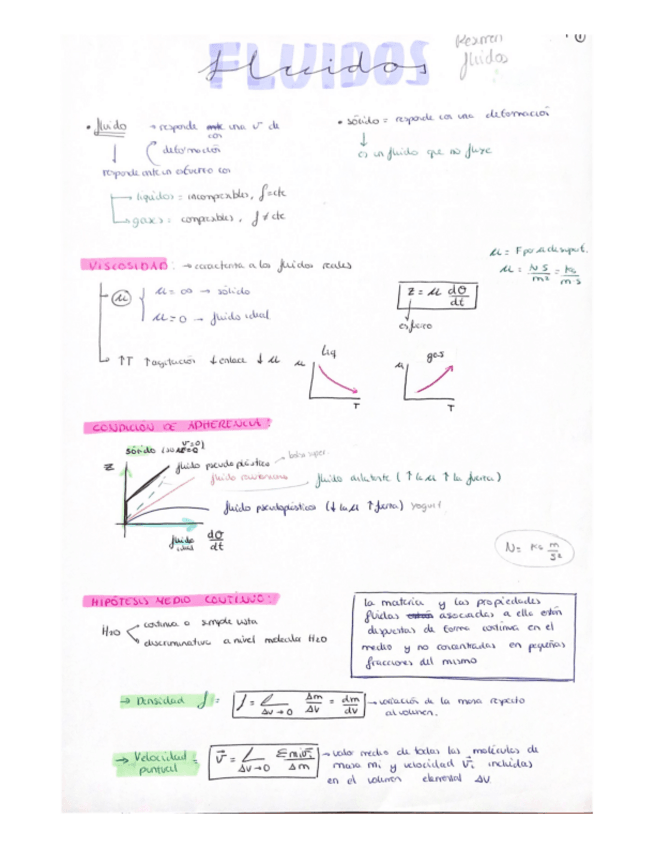 Resumen
fluidos
1
FLUIDOS
fluidos
• fluido → responde ante una v de
con
deformación
responde ante un esfuerzo con
• sólido = responde con una deformación
es un fluido que no fluye
líquidos = incompresibles, ρ = cte
gases = compresibles, ρ ≠ cte
VISCOSIDAD: → caracteriza a los fluidos reales
μ = F por ud. de superf.
μ = N s / m² = kg / m s
μ
μ = ∞ → sólido
μ = 0 → fluido ideal
Z = μ dθ/dt
esfuerzo
↑T ↑agitación ↓enlace ↓μ
liq
μ
T
gas
μ
T
CONDICIÓN DE ADHERENCIA:
sólido
Z
fluido pseudoplástico
fluido newtoniano
fluido dilatante (↑ la μ ↑ la fuerza)
fluido pseudoplástico (↓ la μ ↑ fuerza) yogurt
fluido
ideal
dθ/dt
N = kg m/s²
HIPÓTESIS MEDIO CONTINUO:
H2O
continua a simple vista
discriminativa a nivel molecular H2O
la materia y las propiedades
físicas están asociadas a ella están
dispuestas de forma continua en el
medio y no concentradas en pequeñas
fracciones del mismo
→ Densidad ρ = ρ = L Δv→0 Δm/Δv = dm/dv → variación de la masa respecto
al volumen.
→ Velocidad
puntual = v⃗ = L Δv→0 Σmiv⃗i/Δm → valor medio de todas las moléculas de
masa mi y velocidad v⃗i incluidas
en el volumen elemental ΔV